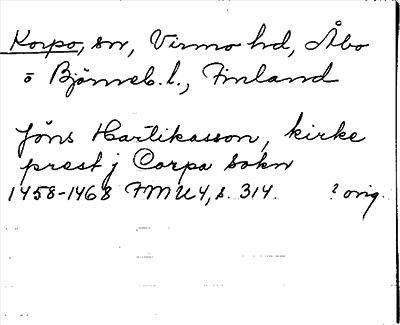 Korpo, sn, Virmo hd, Åbo
o Björneb. l., Finland
Jöns Hartikasson, kirke
prest j Corpo sokn
1458-1468 FMU4, s. 314. ? orig.